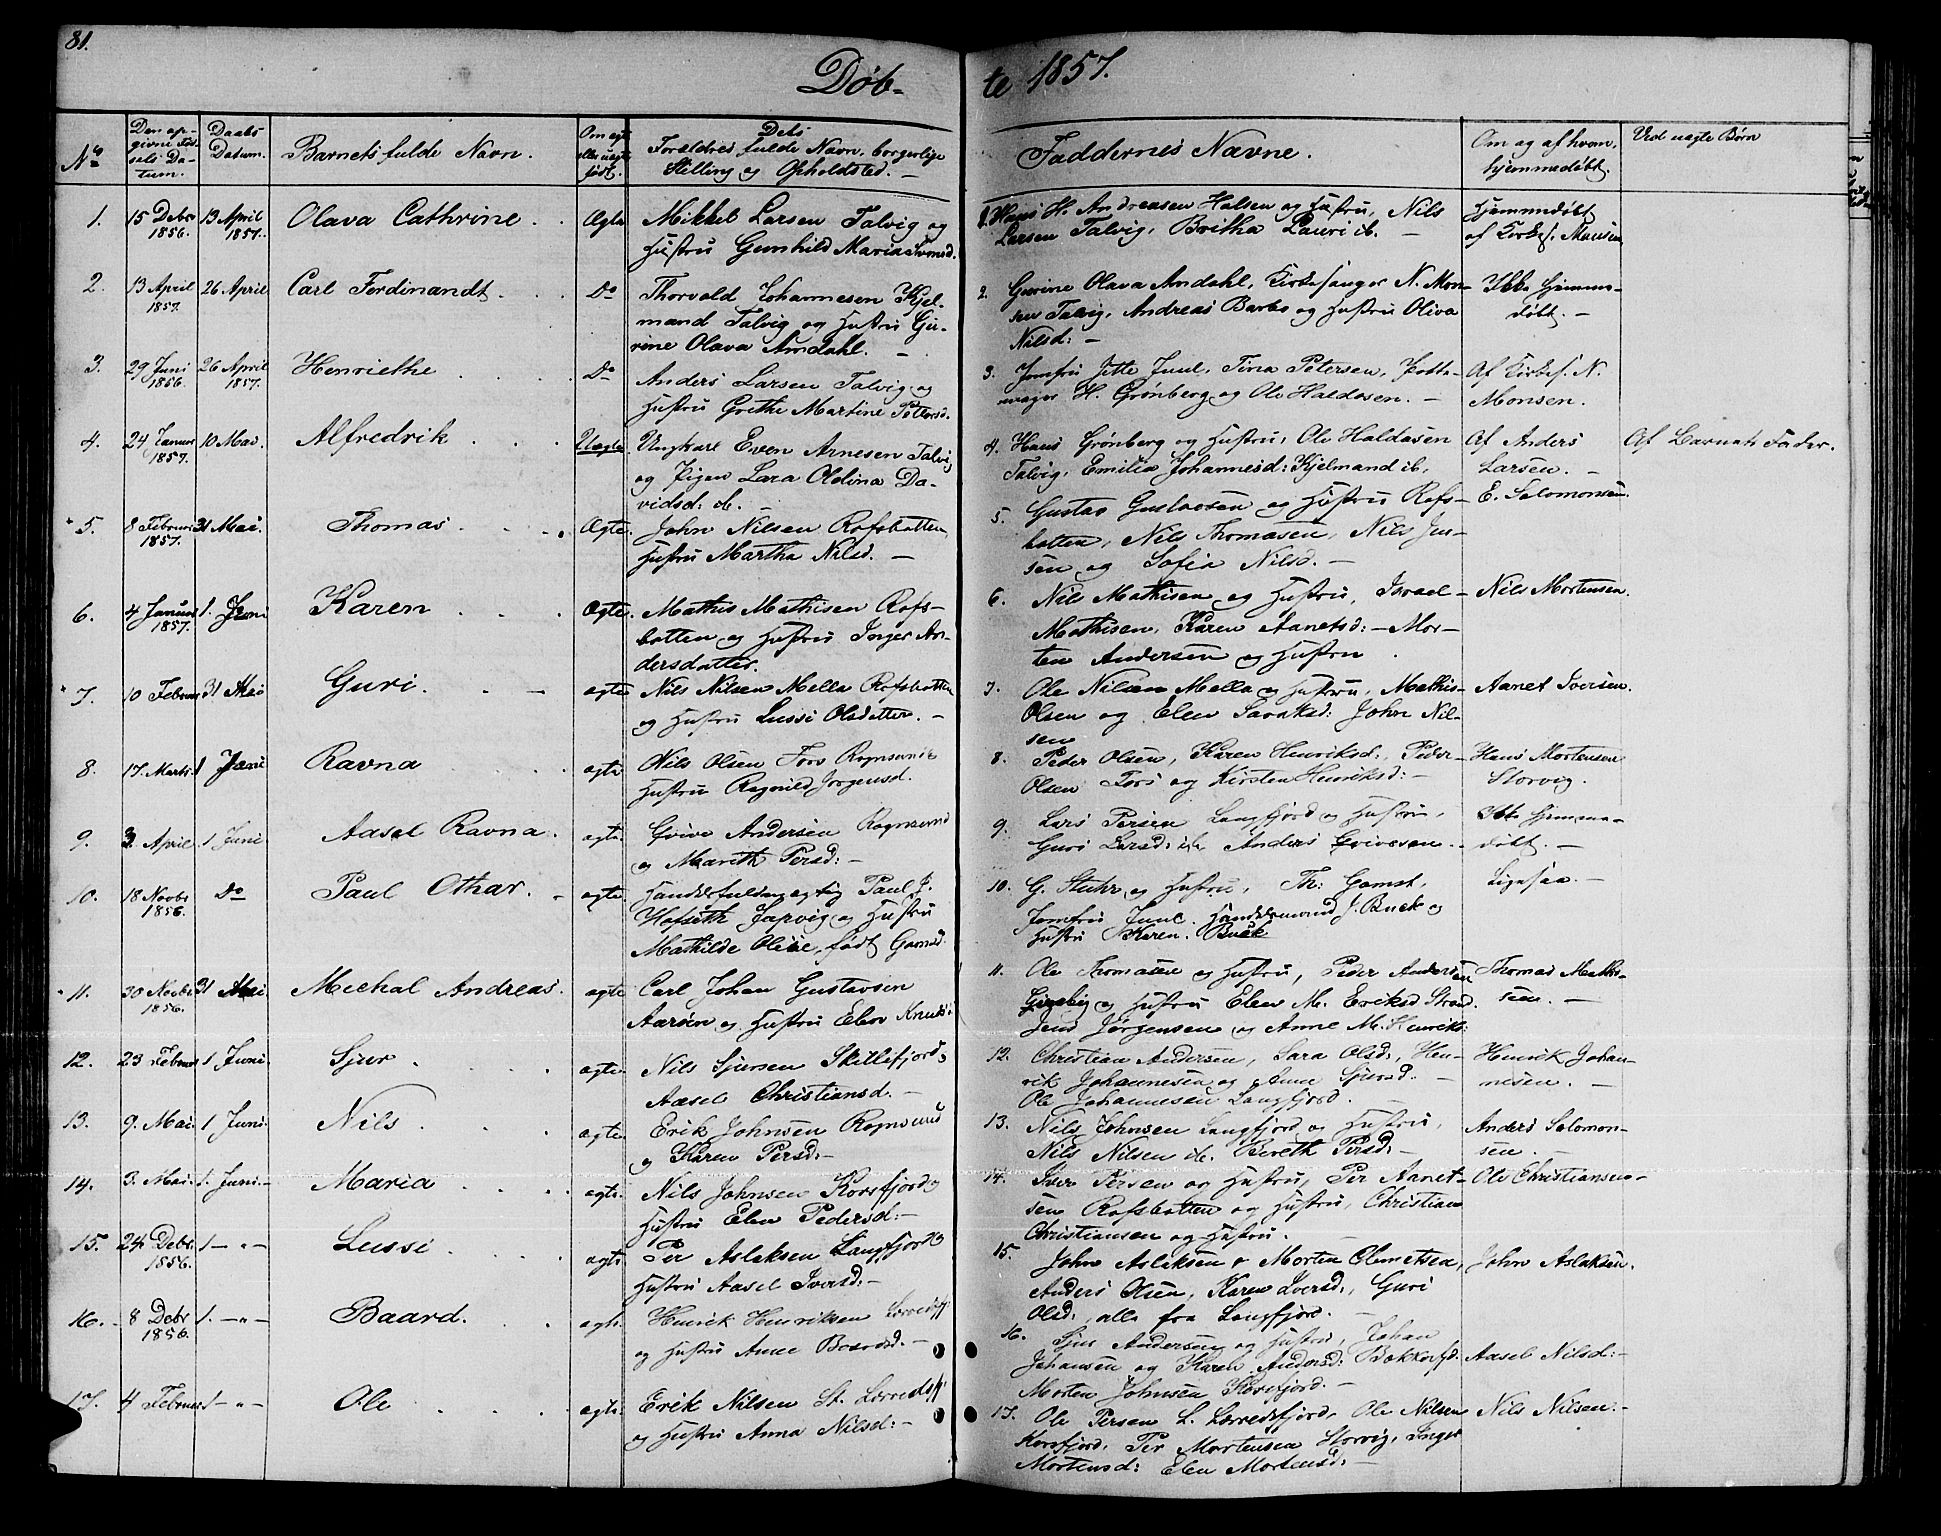 81.
Døb-
te 1857.
No
Den op-
givne Fød-
sels Da-
tum.
Daabs
Datum.
Barnets fulde Navn.
Om ægte
eller uægte
født.
Dets
Forældres fulde Navn, borgerlige
Stilling og Opholdsted. –
Faddernes Navne.
Om og af hvem,
hjemmedøbt.
Ved uægte Børn
1.
15 Debr
1856.
13 April
1857.
Olava Cathrine
Ægte
Mikkel Larsen Talvig og
Hustru Gunhild Maria
1. Hans H. Andreasen Halsen og Hustru, Nils
Larsen Talvig, Britha Lauri ib. –
Hjemmedøbt
af Kirkes. Monsen
2.
13 April
1857.
26 April
Carl Ferdinandt
Do
Thorvald Johannesen Kjel-
mand Talvig og Hustru Gu-
rine Olava Amdahl. –
2. Gurine Olava Amdahl, Kirkesanger N. Mon-
sen Talvig, Andreas Barbo og Hustru Oliva
Nilsd: –
Ikke hjemme-
døbt. –
3.
29 Juni
1856.
26 April
1857.
Henriethe
Do
Anders Larsen Talvig og
Hustru Grethe Martine Pettersd.
3. Jomfru Jette Juul, Tina Petersen, Potte-
mager H. Grønberg og Ole Haldosen. –
Af Kirkes. N.
Monsen.
4.
24 Januar
1857.
10 Mai.
Alfredrik
Uægte
Ungkarl Even Arnesen Talvig
og Pigen Lara Oldina Da-
vidsd. ib. –
4. Hans Grønberg og Hustru, Ole Haldosen
Talvig, Emilia Johannesd: Kjelmand ib,
Af Anders
Larsen. –
Af Barnets Fader.
5.
8 Februar
1857.
31 Mai.
Thomas
Ægte
John Nilsen Rafsbotten,
Hustru Martha Nilsd. –
5. Gustav Gustavsen og Hustru Rafs-
botten, Nils Thomasen, Nils Jen-
sen og Sofia Nilsd. –
E. Salomonsen.
6.
4 Januar
1857.
1. Juni
Karen
Ægte.
Mathis Mathisen Rafs-
botten og Hustru Inger An-
dersdatter.
6. Nils Mathisen og Hustru, Israel-
Mathisen, Karen Aanetsd: – Mor-
ten Andersen og Hustru.
Nils Mortensen.
7.
10 Februar
31 Mai
Guri. –
ægte
Nils Nilsen Mella Rafsbotten
og Hustru Lussi Olsdatter. –
7. Ole Nilsen Mella og Hustru, Mathis-
Olsen og Elen Savaksd: John Nil-
sen
Aanet Iversen.
8.
17. Marts
1 Juni
Ravna
ægte
Nils Olsen Fors Rognsund
Hustru Ragnild Jørgensd.
8. Peder Olsen, Karen Henriksd:, Peder-
Olsen Fors og Kirsten Henriksd: –
Hans Mortensen
Storvig.
9.
3 April
1 Juni
Aasel Ravna.
ægte.
Qvive Andersen Rognsund
og Marith Persd: –
9. Lars Persen Langfjord og Hustru,
Guri Larsd: ib Anders Qvivesen. –
Ikke hjemme-
døbt. –
10.
18 Novbr
1856.
Do
Paul Othar. –
ægte
Handelsfuldmægtig Paul J.
Hofseth Jupvig og Hustru
Mathilde Olive, født Gamst.
10. G. Stuhr og Hustru, Th: Gamst,
Jomfru Juul, Handelsmand J. Buck og
Hustru Karen. Buck
Ligesaa. –
11.
30 Novbr
1856.
31 Mai.
Mechal Andreas.
ægte
Carl Johan Gustavsen
Aarøen og Hustru Elen Knuds
11. Ole Thomasen og Hustru, Peder Andersen
og Hustru Elen M. Eriksd Strand.
Jens Jørgensen og Anne M. Henriks:
Thomas Mathi-
sen. –
12.
23 Februar
1 Juni.
Sjur
ægte
Nils Sjursen Skillefjord og
Aasel Christiansd. –
12. Christian Andersen, Sara Olsd:, Hen-
rik Johannesen og Anne Sjursd. –
Ole Johannesen Langfjord. –
Henrik Johan-
nesen. –
13.
9. Mai.
1 Juni.
Nils.
ægte.
Erik Johnsen Rognsund
og Karen Persd: –
13. Nils Johnsen Langfjord og Hustru,
Nils Nilsen ib. Bereth Persd: –
Anders Solomon-
sen. –
14.
3. Mai.
1. Juni. –
Maria
ægte.
Nils Johnsen Korsfjord og
Hustru Elen Pedersd: –
14. Iver Persen og Hustru, Per Aanet-
sen Rafsbotten og Hustru, Christian
Christiansen og Hustru. –
Ole Christiansen –
15.
24 Debr.
1856.
1 – " –
Lussi
ægte
Per Aslaksen Langfjord og
Hustru Aasel Iversd: –
15. John Aslaksen & Morten Clemetsen,
Anders Olsen, Karen Iversd:, Guri
Olsd:, alle fra Langfjord. –
John Aslaksen.
16. –
8 Debr
1856.
1. – " –
Baard.
ægte.
Henrik Henriksen
og Hustru Anne –
16. Sjur Andersen og Hustru, Johan
Johansen og Karen Andersd: Bokkefjd:
Morten Johnsen Korsfjord. –
Aasel Nilsd: –
17.
4 Februar
1 – " –
Ole
ægte.
Erik Nilsen St. Lerredsfj.
og Hustru Anna Nilsd: –
17. Ole Persen L. Lerredsfjord, Ole Nilsen
Korsfjord, Per Mortensen Storvig, Inger
Mortensd: Elen Mortensd: –
Nils Nilsen. –